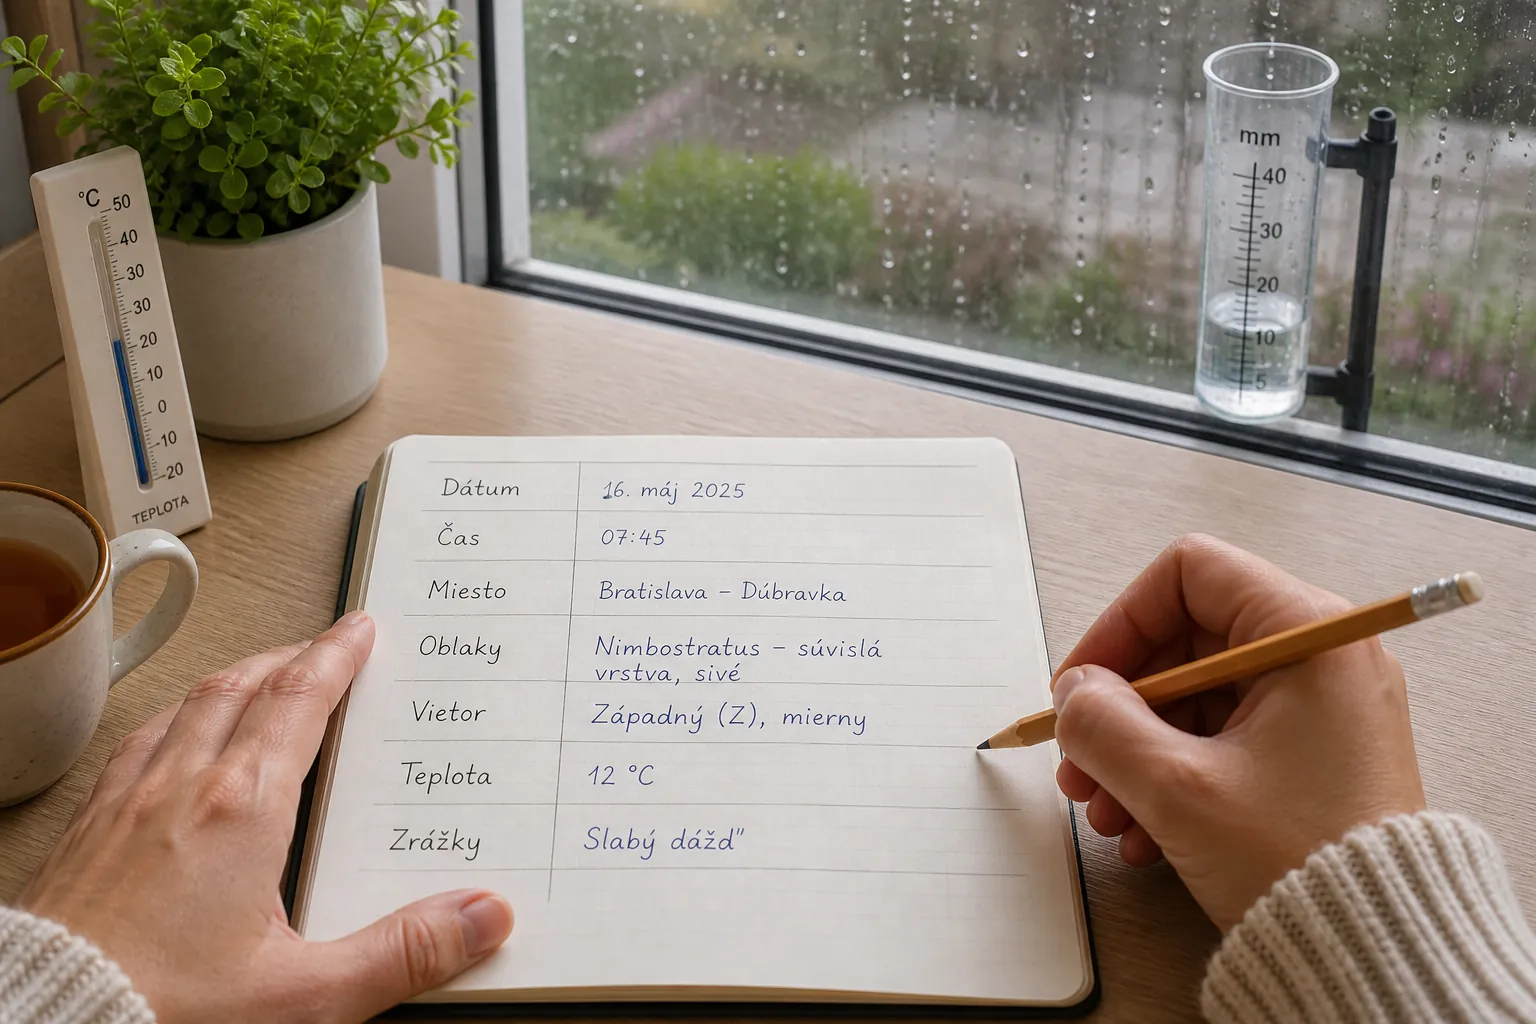 °C
50
40
30
30
20
10
0
-10
-20
TEPLOTA
mm
40
30
20
10
5
Dátum 16. máj 2025
Čas 07:45
Miesto Bratislava – Dúbravka
Oblaky Nimbostratus – súvislá
vrstva, sivé
Vietor Západný (Z), mierny
Teplota 12 °C
Zrážky Slabý dážd"